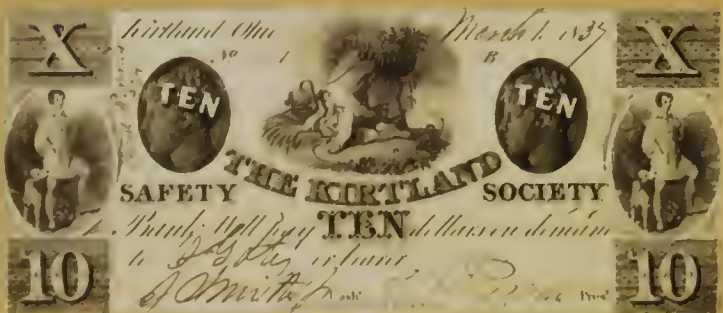 X Kirtland Ohio March 1. 1837 X
No 1 B
TEN TEN
THE KIRTLAND
SAFETY SOCIETY
Bank, Will Pay TEN dollars on demand
to or bearer
10 J Smith Jr Cash Prest 10